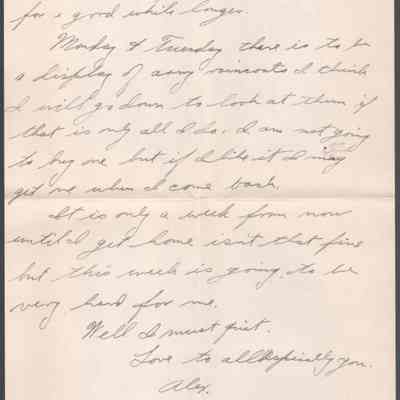 for a good while longer.
Monday & Tuesday there is to be
a display of army raincoats I think
I will go down to look at them if
that is only all I do. I am not going
to buy one but if I like it I may
get one when I come back.
It is only a week from now
until I get home isn't that fine
but this week is going to be
very hard for me.
Well I must quit.
Love to all & especially you.
Alex.